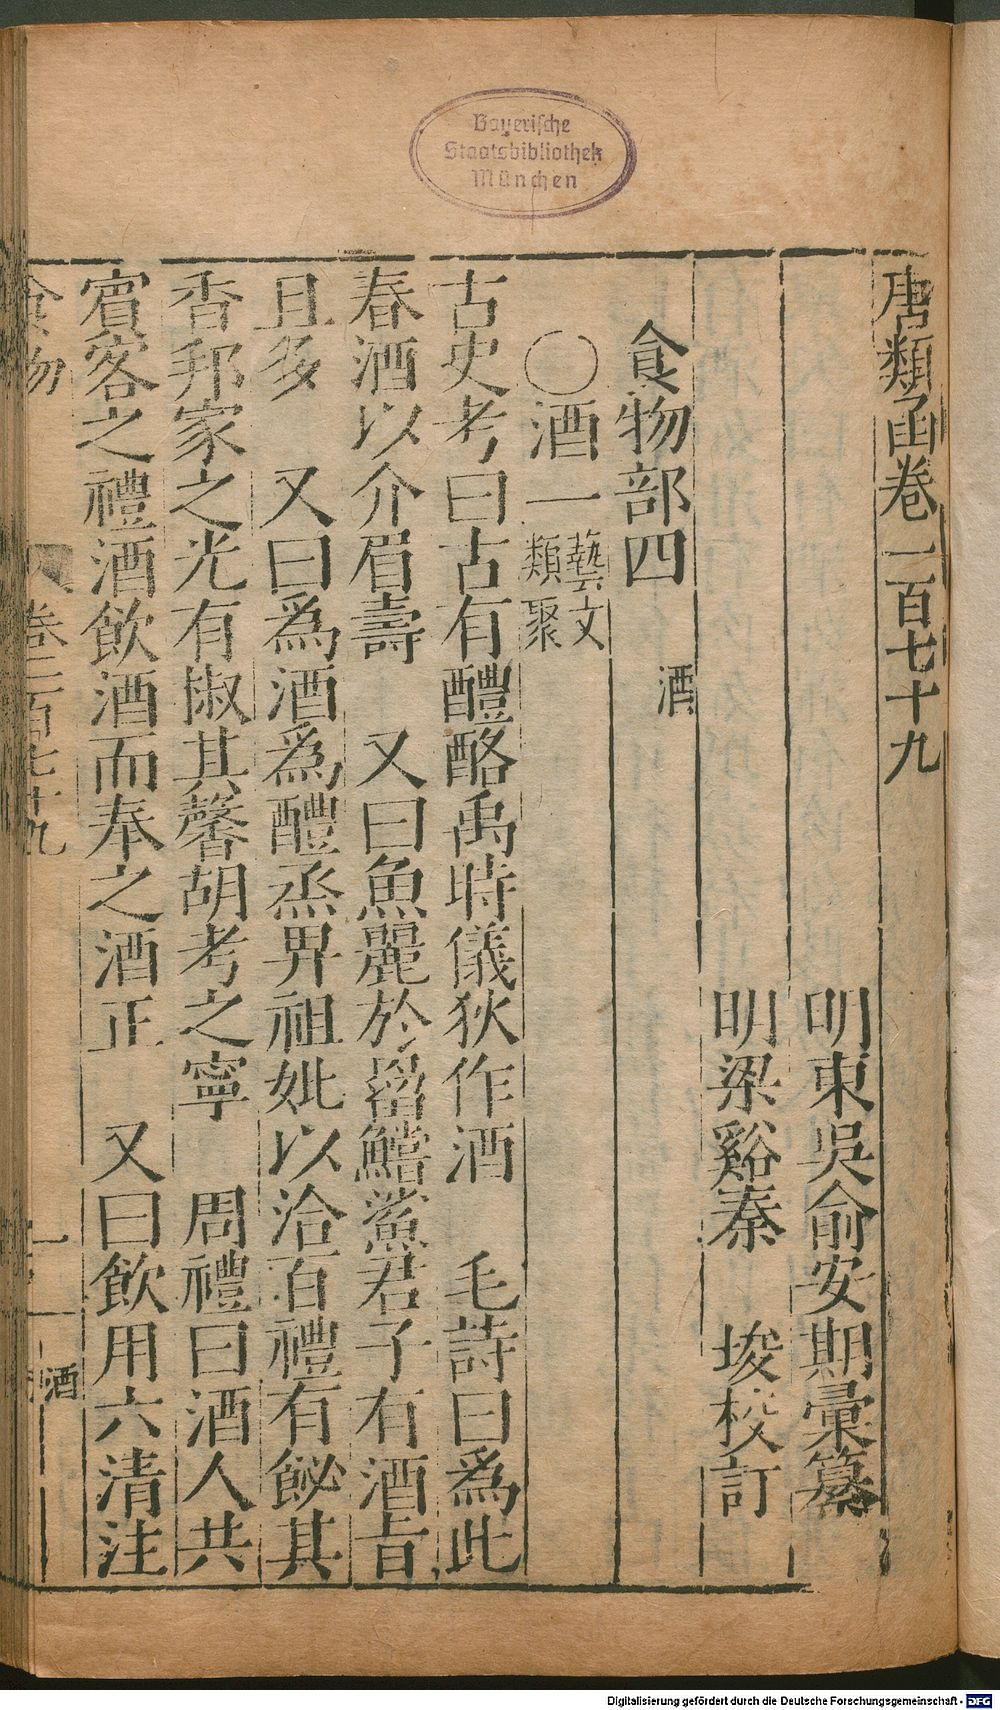 Bayerische
Staatsbibliothek
München
唐類函卷一百七十九
明東吳俞安期彙纂
明梁谿秦　埈校訂
食物部四　酒
〇酒一藝文類聚
古史考曰古有醴酪禹時儀狄作酒　毛詩曰爲此
春酒以介眉壽　又曰魚麗於罶鱨鯊君子有酒旨
且多　又曰爲酒爲醴烝畀祖妣以洽百禮有飶其
香邦家之光有椒其馨胡考之寧　周禮曰酒人共
賓客之禮酒飲酒而奉之酒正　又曰飲用六清注
食物　卷一百七十九　一　酒
Digitalisierung gefördert durch die Deutsche Forschungsgemeinschaft - DFG